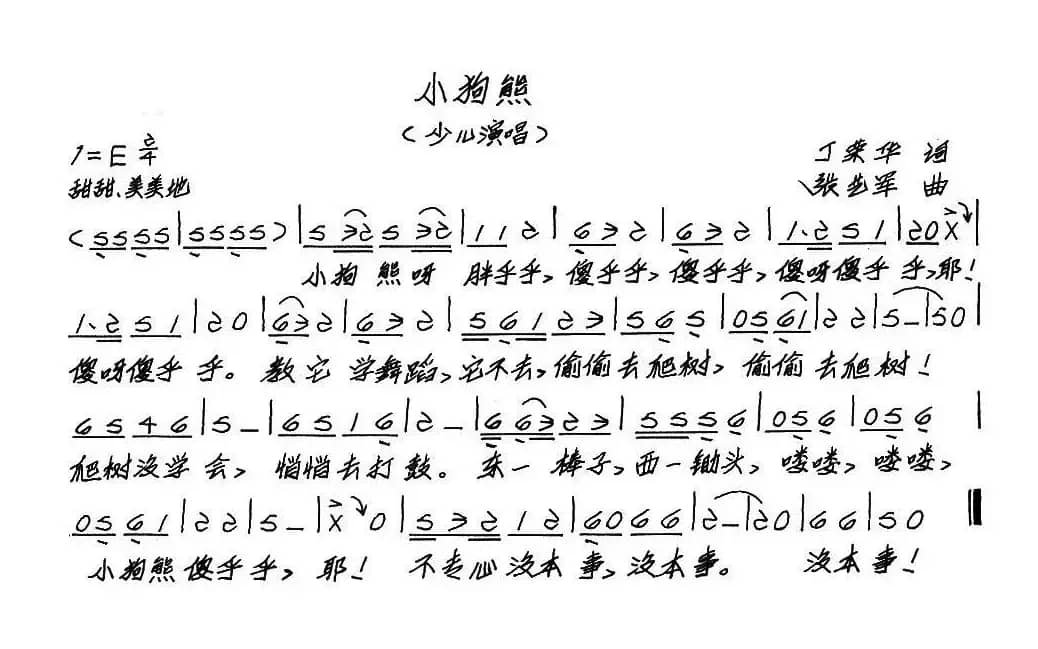 小狗熊
（少儿演唱）
1=E 2/4
丁荣华 词
甜甜、美美地
张艺军 曲
(5555|5555)|5 325 32|112|632|632|1.2 51|20X|
小狗 熊呀 胖乎乎，傻乎乎，傻乎乎，傻呀傻乎 乎，耶！
1.2 51|20|632|632|561 23|565|0561|22|5–|50|
傻呀傻乎 乎。教它 学舞蹈，它不去，偷偷去爬树，偷偷去爬树！
6546|5–|6516|2–|663 23|5556|056|056|
爬树没学会，悄悄去打鼓。东一棒子，西一锄头，喽喽，喽喽，
0561|22|5–|X 0|532 12|6066|2–|20|66|50
小狗熊傻乎乎，耶！不专心没本事，没本事。 没本事！